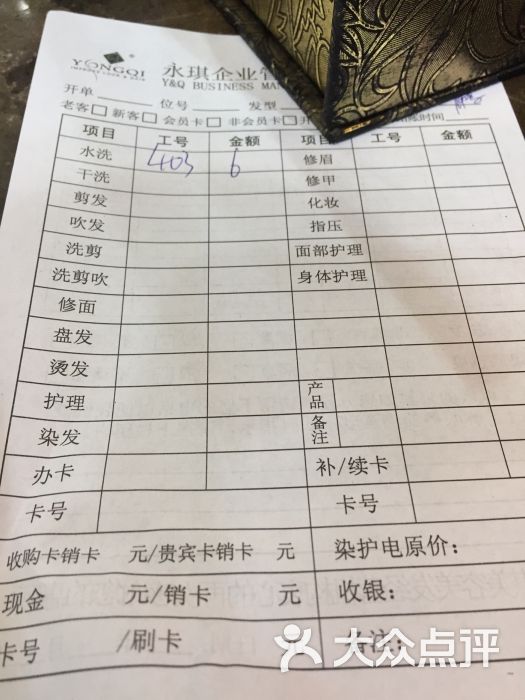 YONGQI 永琪企业管
Y&Q BUSINESS MAN
开单 位号 发型
老客 新客 会员卡 非会员卡 开 时间
项目 工号 金额 项目 工号 金额
水洗 403 6 修眉
干洗 修甲
剪发 化妆
吹发 指压
洗剪 面部护理
洗剪吹 身体护理
修面
盘发
烫发
护理 产品
染发 备注
办卡 补/续卡
卡号 卡号
收购卡销卡 元/贵宾卡销卡 元 染护电原价:
现金 元/销卡 元 收银:
卡号 /刷卡 备注:
大众点评